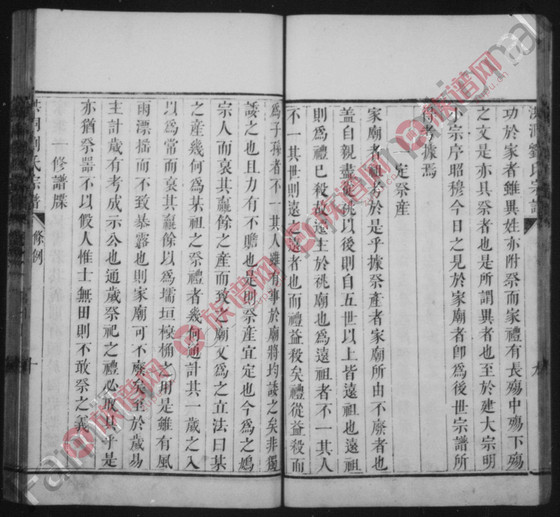 洪洞劉氏宗譜
九
功於家者雖異姓亦附祭而家禮有長殤中殤下殤
之文是亦具祭者也是所謂異者也至於建大宗明
小宗序昭穆今日之見於家廟者卽爲後世宗譜所
得考據焉
一定祭產
家廟者 於是乎據祭產者家廟所由不廢者也
蓋自親盡 祧以後則自五世以上皆遠祖也遠祖
則爲禮已殺故遠於祧廟也爲遠祖者不一其人
不一其世則遠之 者也而禮益殺矣禮從益殺而
爲子孫者不一其人雖有事於廟將均諉之矣非獨
諉之也且力有不贍也是則祭產宜定也今爲之鳩
宗人而裒其羸餘之產而致之廟又爲之立法曰某
之產幾何爲某祖之 祭禮者幾何通計其一歲之入
以爲常而裒其羸餘以爲墻垣 桷 用是雖有風
雨漂搖而不致暴露也則家廟可不廢 至於歲易
主計歲有考成示公也通歲祭祀之禮必 乎是
亦猶祭器不以假人惟士無田則不敢祭之義
一修譜牒
洪洞劉氏宗譜
條例
十
族谱网
Familyannals